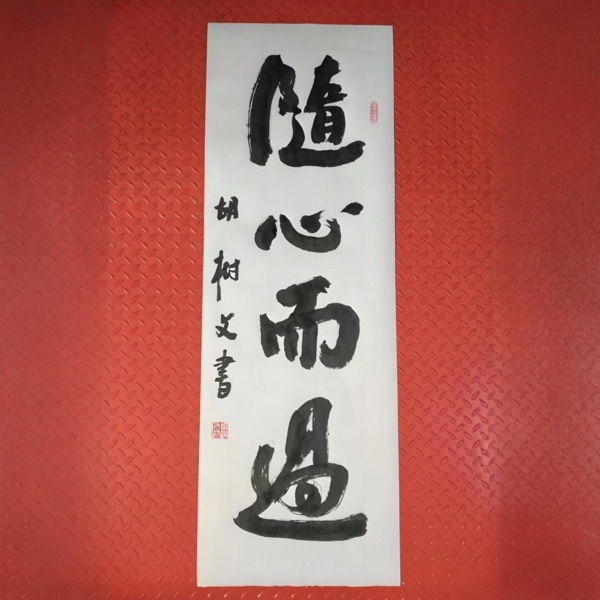 隨心而過
胡树文書